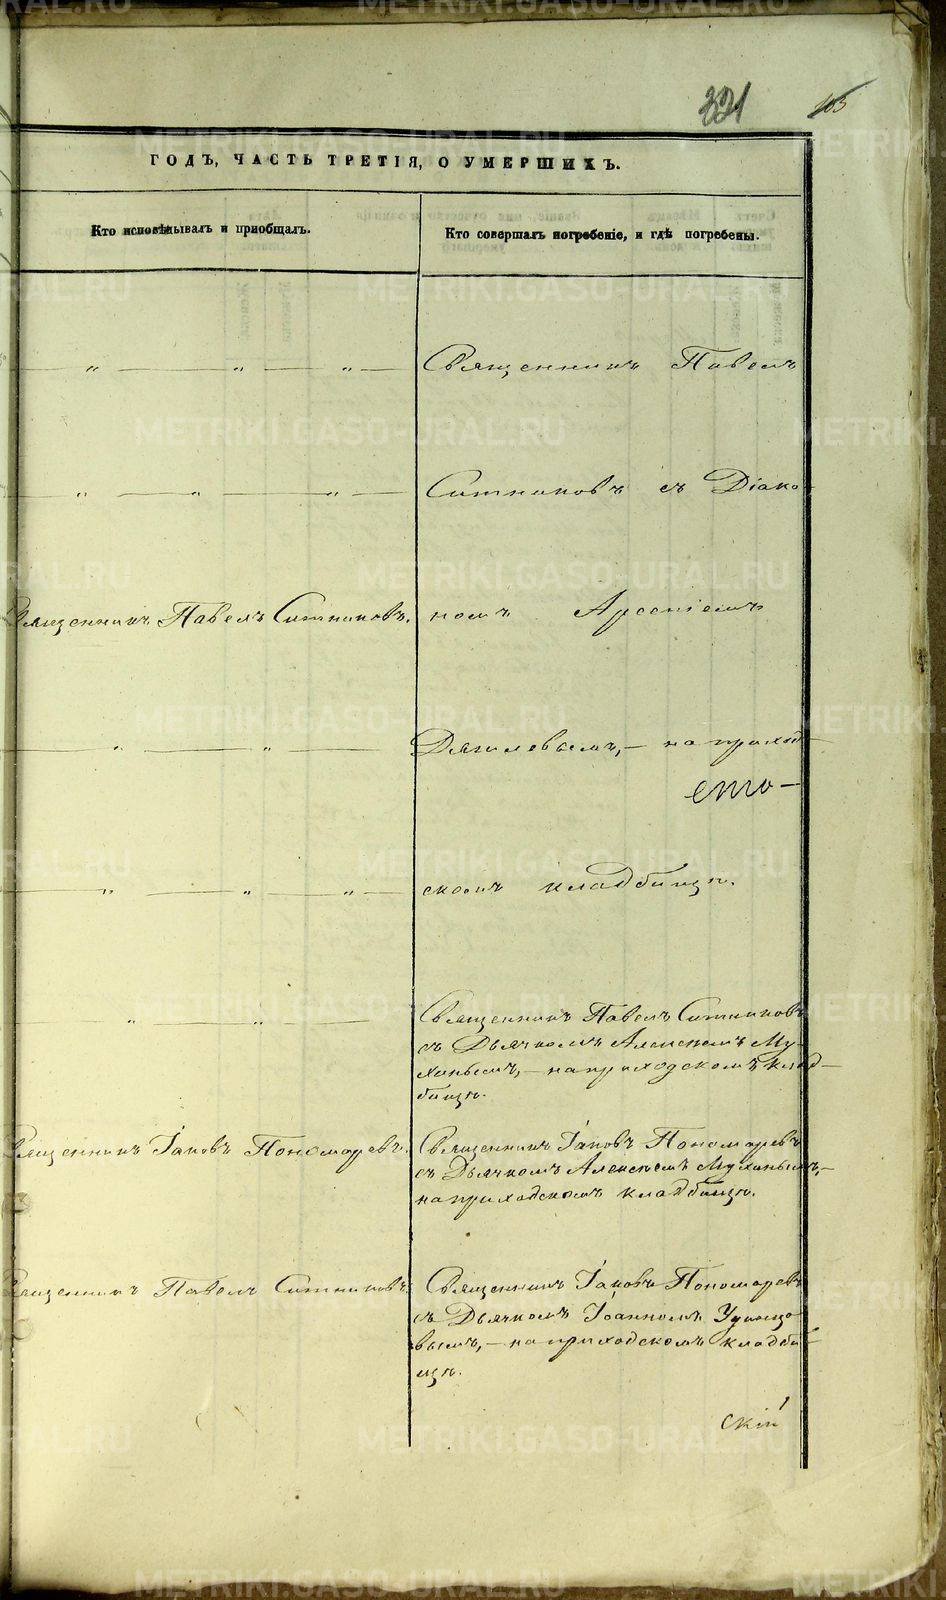 321
103
ГОДЪ, ЧАСТЬ ТРЕТІЯ, О УМЕРШИХЪ.
Кто исповѣдывалъ и пріобщалъ.
Кто совершалъ погребеніе, и гдѣ погребены.
" — " — " —
Священникъ Павелъ
" — " — " —
Ситниковъ съ Діако-
Священникъ Павелъ Ситниковъ.
номъ Арсеніемъ
" — " —
Дягилевымъ, — на приход-
ско-
" — " — " —
скомъ кладбищѣ.
" " —
Священникъ Павелъ Ситниковъ
съ Дьячкомъ Алексѣемъ Му-
хинымъ, — на приходскомъ клад-
бищѣ.
Священникъ Іаковъ Пономаревъ.
Священникъ Іаковъ Пономаревъ
съ Дьячкомъ Алексѣемъ Мухинымъ, —
на приходскомъ кладбищѣ.
Священникъ Павелъ Ситниковъ.
Священникъ Іаковъ Пономаревъ
съ Дьячкомъ Іоанномъ
вымъ, — на приходскомъ кладби-
щѣ.
скій
METRIKI.GASO-URAL.RU